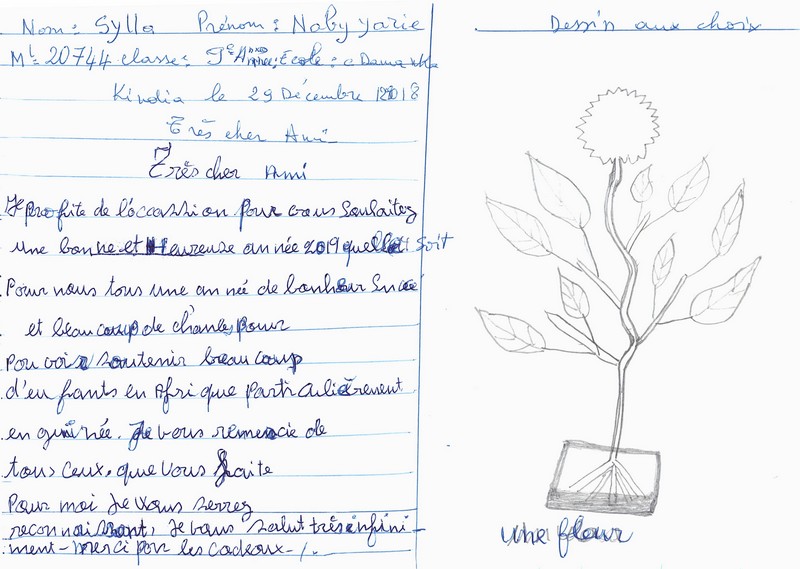 Nom: Sylla Prénom: Naby Yarie
Mle: 20744 classe: Année; École:
Kindia le 29 Décembre 2018
Très cher Ami
Très cher Ami
Je profite de l'occassion pour vous Souhaitez
une bonne et Heureuse année 2019 quelle soit
Pour nous tous une année de bonheur Succé
et beaucoup de chance pour
Pouvoir soutenir beaucoup
d'enfants en Afrique particulièrement
en guinée. Je vous remercie de
tous ceux, que vous faite
Pour moi Je vous serrez
reconnaissant, Je vous salut très infini-
ment-merci pour les cadeaux-/.
Dessin aux choix
Une fleur